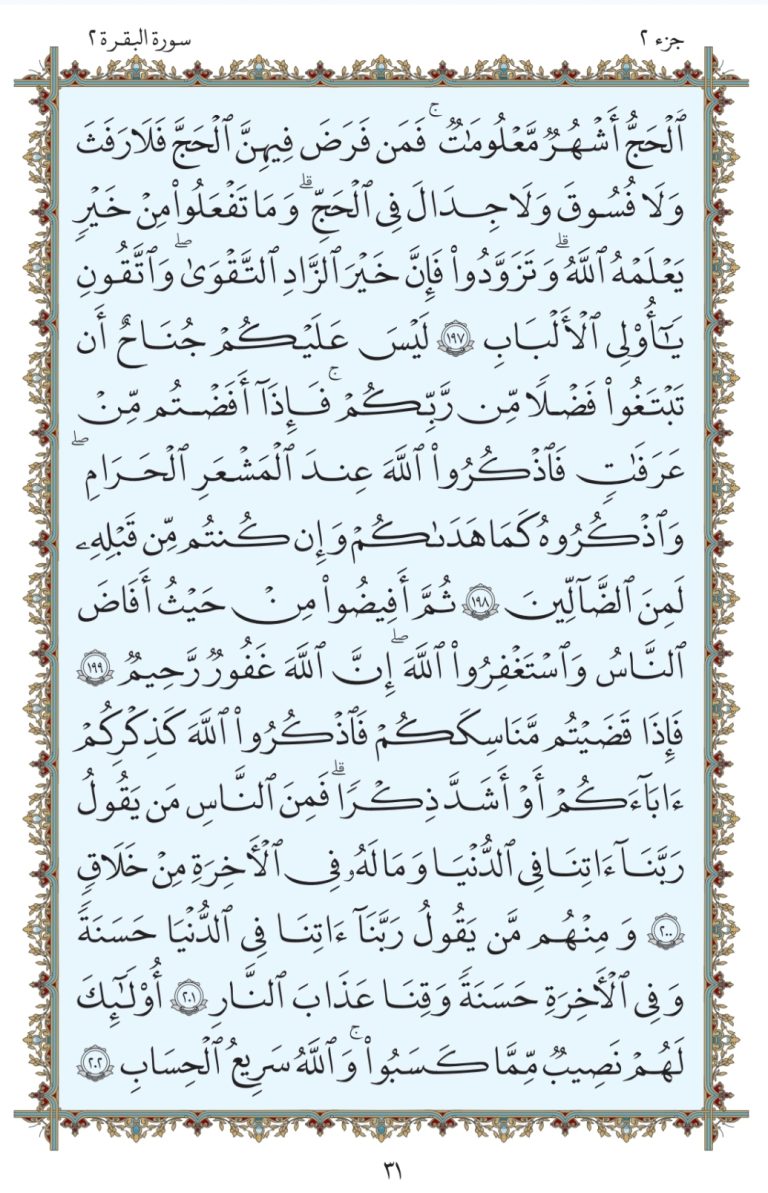 جزء ٢
سورة البقرة ٢
ٱلْحَجُّ أَشْهُرٌ مَّعْلُومَٰتٌ ۚ فَمَن فَرَضَ فِيهِنَّ ٱلْحَجَّ فَلَا رَفَثَ
وَلَا فُسُوقَ وَلَا جِدَالَ فِى ٱلْحَجِّ ۗ وَمَا تَفْعَلُوا۟ مِنْ خَيْرٍ
يَعْلَمْهُ ٱللَّهُ ۗ وَتَزَوَّدُوا۟ فَإِنَّ خَيْرَ ٱلزَّادِ ٱلتَّقْوَىٰ ۖ وَٱتَّقُونِ
يَٰٓأُو۟لِى ٱلْأَلْبَٰبِ ١٩٧ لَيْسَ عَلَيْكُمْ جُنَاحٌ أَن
تَبْتَغُوا۟ فَضْلًا مِّن رَّبِّكُمْ ۚ فَإِذَآ أَفَضْتُم مِّنْ
عَرَفَٰتٍ فَٱذْكُرُوا۟ ٱللَّهَ عِندَ ٱلْمَشْعَرِ ٱلْحَرَامِ ۖ
وَٱذْكُرُوهُ كَمَا هَدَىٰكُمْ وَإِن كُنتُم مِّن قَبْلِهِۦ
لَمِنَ ٱلضَّآلِّينَ ١٩٨ ثُمَّ أَفِيضُوا۟ مِنْ حَيْثُ أَفَاضَ
ٱلنَّاسُ وَٱسْتَغْفِرُوا۟ ٱللَّهَ ۖ إِنَّ ٱللَّهَ غَفُورٌ رَّحِيمٌ ١٩٩
فَإِذَا قَضَيْتُم مَّنَٰسِكَكُمْ فَٱذْكُرُوا۟ ٱللَّهَ كَذِكْرِكُمْ
ءَابَآءَكُمْ أَوْ أَشَدَّ ذِكْرًا ۗ فَمِنَ ٱلنَّاسِ مَن يَقُولُ
رَبَّنَآ ءَاتِنَا فِى ٱلدُّنْيَا وَمَا لَهُۥ فِى ٱلْأَخِرَةِ مِنْ خَلَٰقٍ
٢٠٠ وَمِنْهُم مَّن يَقُولُ رَبَّنَآ ءَاتِنَا فِى ٱلدُّنْيَا حَسَنَةً
وَفِى ٱلْأَخِرَةِ حَسَنَةً وَقِنَا عَذَابَ ٱلنَّارِ ٢٠١ أُو۟لَٰٓئِكَ
لَهُمْ نَصِيبٌ مِّمَّا كَسَبُوا۟ ۚ وَٱللَّهُ سَرِيعُ ٱلْحِسَابِ ٢٠٢
٣١